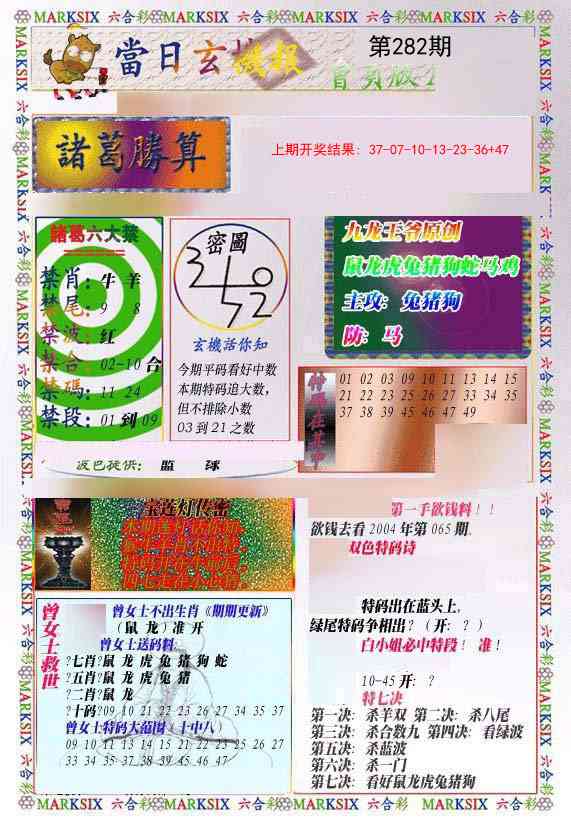 MARKSIX 六合彩 MARKSIX 六合彩 MARKSIX 六合彩 MARKSIX 六合彩 MARKSIX
當日玄機報
第282期
諸葛勝算
上期开奖结果: 37-07-10-13-23-36+47
諸葛六大禁
禁肖: 牛 羊
禁尾: 9 8
禁波: 红
禁合: 02-10 合
禁碼: 11 24
禁段: 01 到 09
密圖
玄機活你知
今期平码看好中数
本期特码追大数,
但不排除小数
03 到 21 之数
九龙王爷原创
鼠龙虎兔猪狗蛇马鸡
主攻: 兔猪狗
防: 马
特碼在其中
01 02 03 09 10 11 13 14 15
21 22 23 25 26 27 33 34 35
37 38 39 45 46 47 49
波色提供: 蓝 绿
宝莲灯传密
第一手欲钱料!!
欲钱去看 2004 年第 065 期.
双色特码诗
特码出在蓝头上,
绿尾特码争相出? (开: ? )
白小姐必中特段! 准!
10-45 开: ?
特七决
第一决: 杀羊双 第二决: 杀八尾
第三决: 杀合数九 第四决: 看绿波
第五决: 杀蓝波
第六决: 杀一门
第七决: 看好鼠龙虎兔猪狗
曾女士救世
曾女士不出生肖《期期更新》
(鼠 龙) 准 开
曾女士送码料:
?七肖?鼠 龙 虎 兔 猪 狗 蛇
?五肖?鼠 龙 虎 兔 猪
?二肖?鼠 龙
?十码?09 10 21 22 23 26 27 34 35 37
曾女士特码大范围 (十中八)
09 10 11 13 14 15 21 22 23 25 26 27
33 34 35 37 38 39 45 46 47
MARKSIX 六合彩 MARKSIX 六合彩 MARKSIX 六合彩 MARKSIX 六合彩 MARKSIX